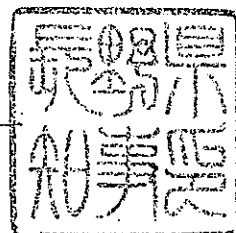 長野県
知事印